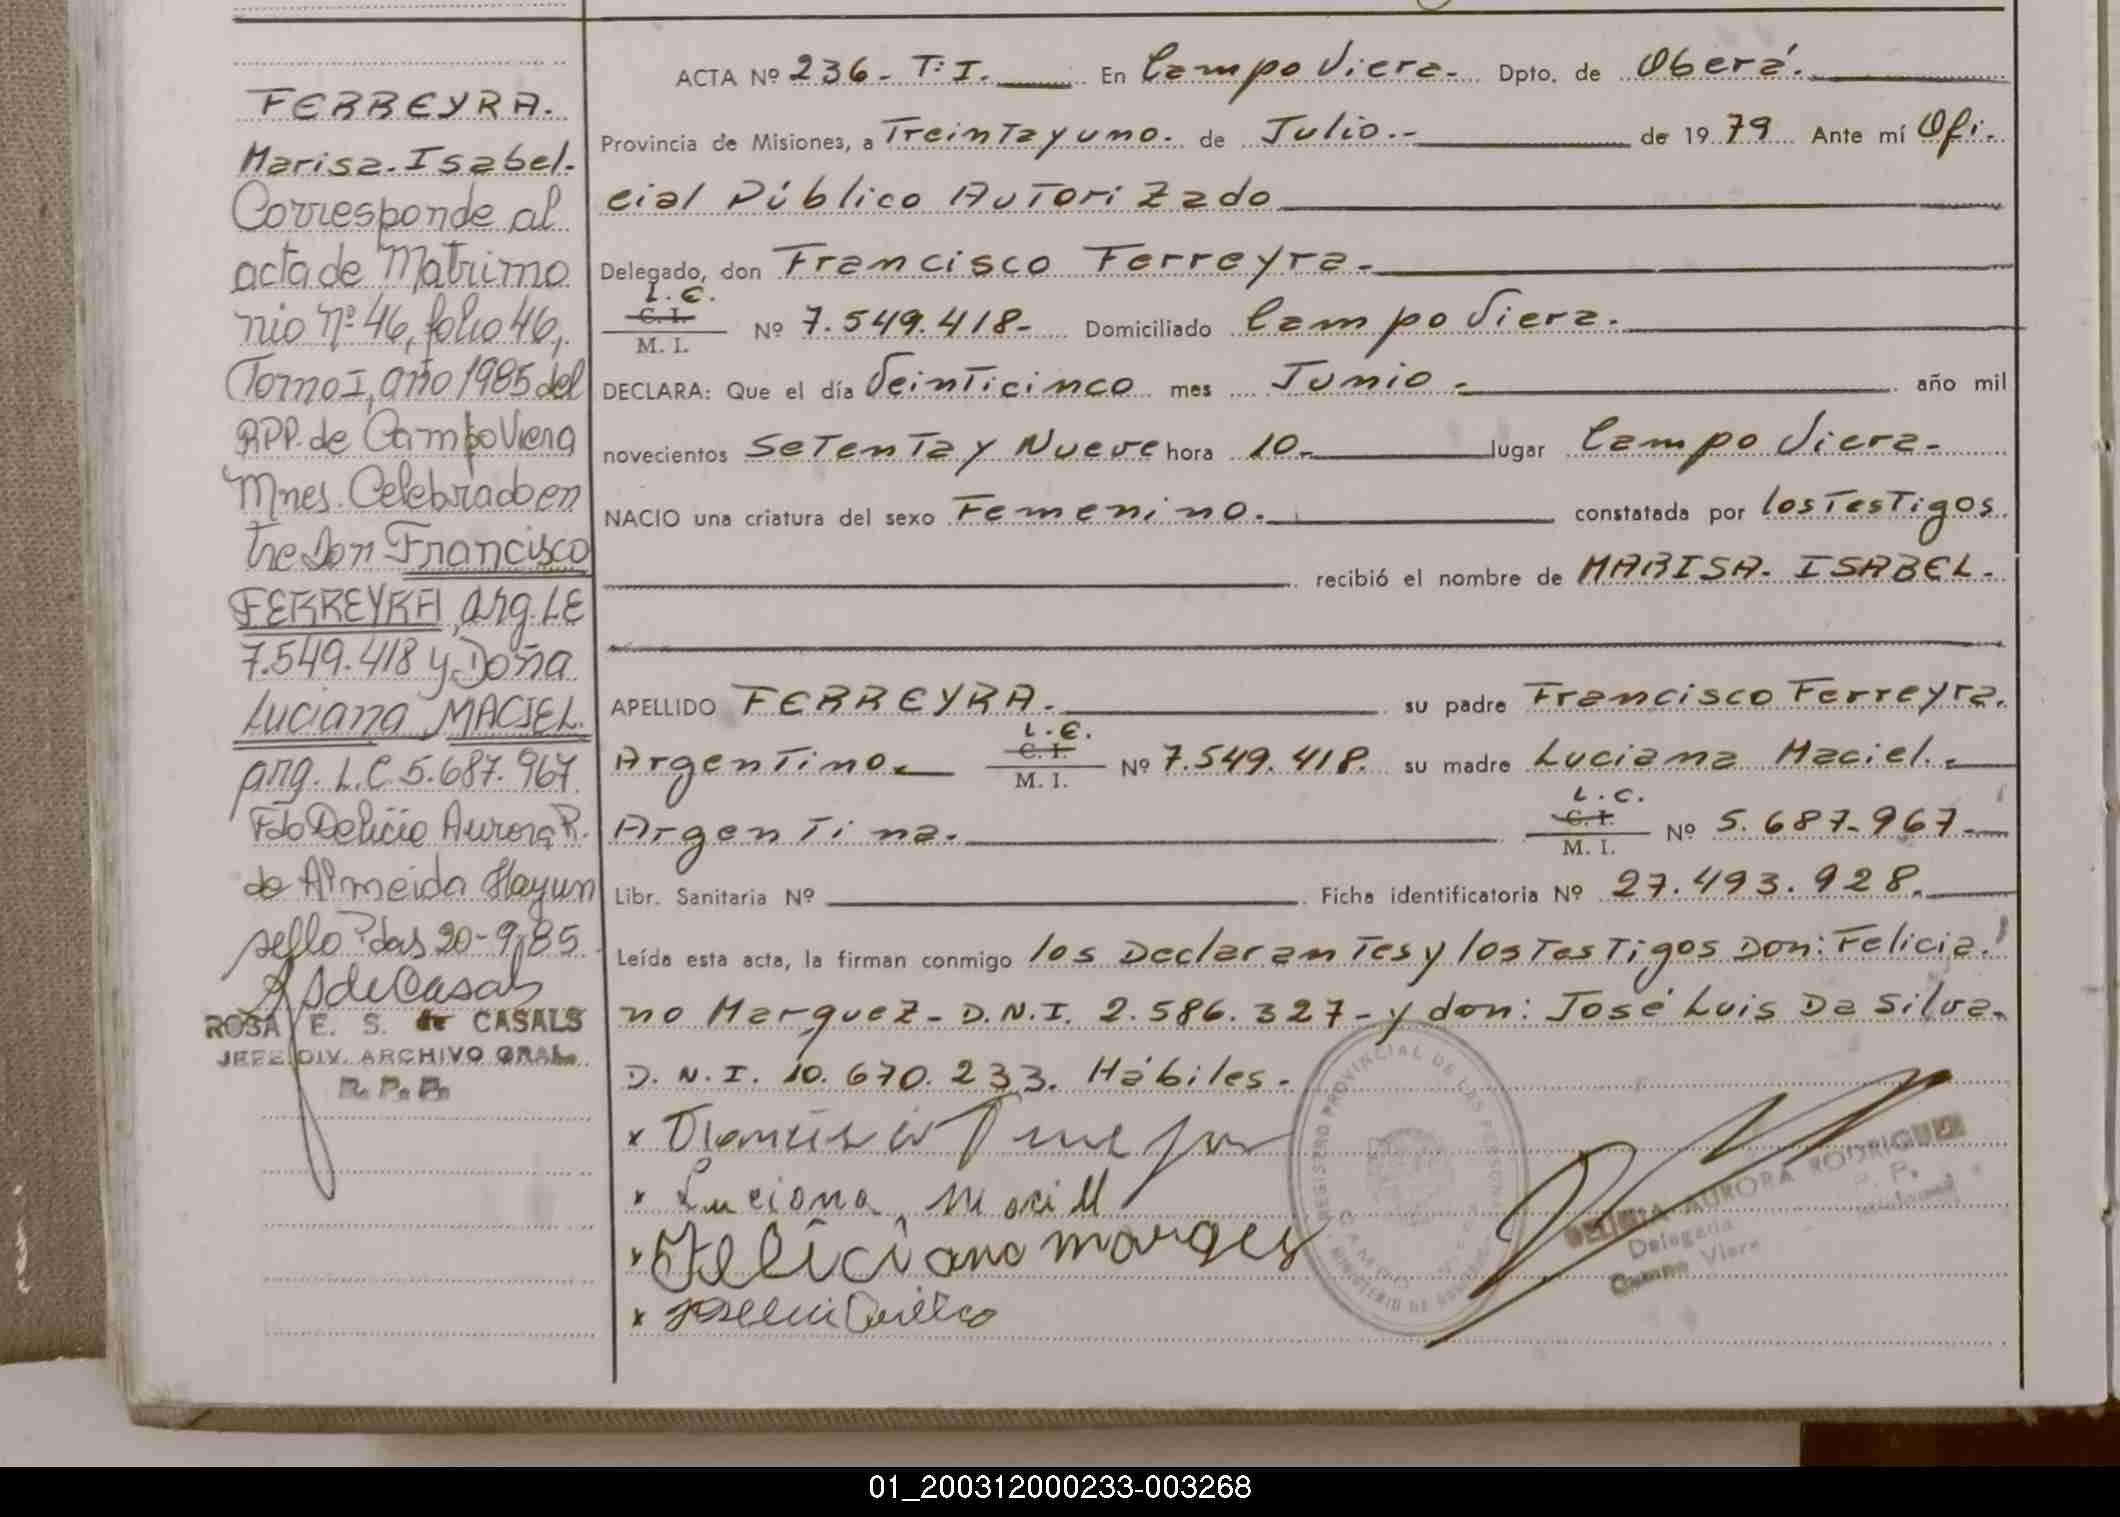 FERREYRA.
Marisa-Isabel.
Corresponde al
acta de Matrimo
nio Nº 46, folio 46,
Tomo I, año 1985 del
RPP. de Campo Viera
Mnes. Celebrado en
tre Don Francisco
FERREYRA, arg. LE
7.549.418 y Doña
Luciana MACIEL.
arg. L.C 5.687.967.
Fdo Delicio Aurora R.
de Almeida Hay un
sello Pdas 20-9-85.
ROSA E. S. de CASALS
JEFE DIV. ARCHIVO GRAL.
R. P. P.
ACTA Nº 236- T: I. En Campo Viera- Dpto. de Oberá.
Provincia de Misiones, a Treinta y uno. de Julio.- de 1979 Ante mí Ofi-
cial Público Autorizado
Delegado, don Francisco Ferreyra-
L.E.
C. I.
M. I. Nº 7.549.418- Domiciliado Campo Viera.
DECLARA: Que el día Veinticinco mes Junio- año mil
novecientos Setenta y Nueve hora 10- lugar Campo Viera-
NACIO una criatura del sexo Femenino. constatada por los Testigos.
recibió el nombre de MARISA- ISABEL-
APELLIDO FERREYRA. su padre Francisco Ferreyra.
L.E.
Argentino. C. I.
M. I. Nº 7.549.418. su madre Luciana Maciel.
L.C.
Argentina. C. I.
M. I. Nº 5.687-967-
Libr. Sanitaria Nº Ficha identificatoria Nº 27.493.928.
Leída esta acta, la firman conmigo los Declarantes y los Testigos Don: Felicia-
no Marquez- D.N.I. 2.586.327- y don: José Luis Da Silva-
D.N.I. 10.670.233. Hábiles-
Luciana Maciel
Feliciano marques
REGISTRO PROVINCIAL DE LAS PERSONAS
MINISTERIO DE GOBIERNO
DELICIA AURORA RODRIGUEZ
Delegada
Campo Viera
01_200312000233-003268